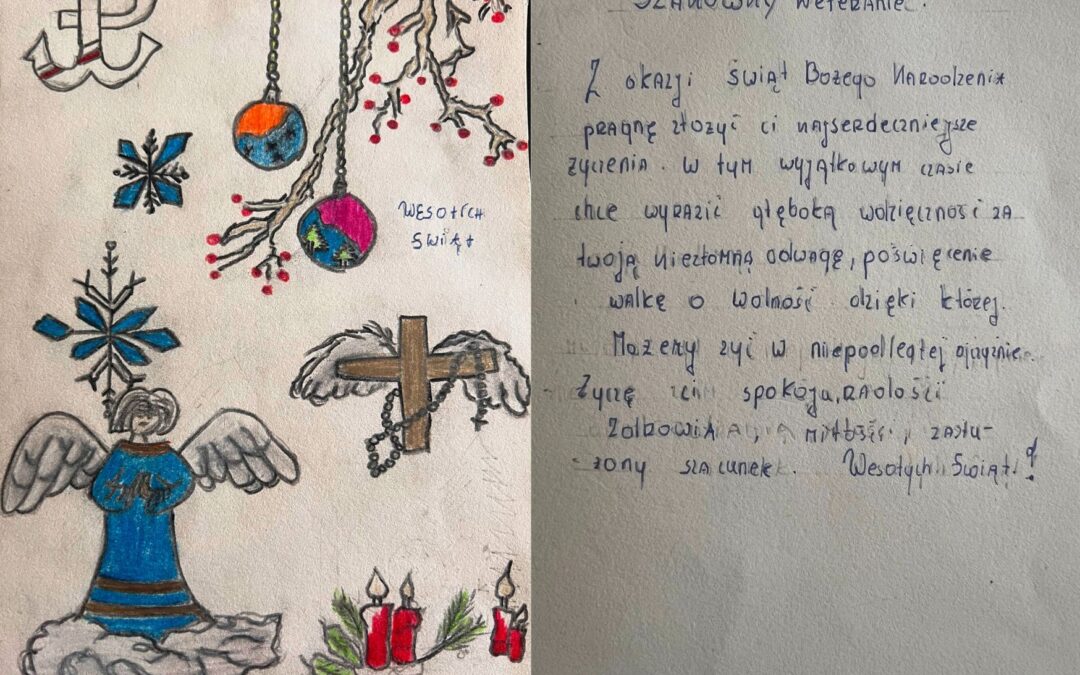 WESOŁYCH
ŚWIĄT
SZANOWNY WETERANIE.
Z okazji świąt Bożego Narodzenia
pragnę złożyć ci najserdeczniejsze
życzenia. W tym wyjątkowym czasie
chce wyrazić głęboką wdzięczność za
twoją niezłomną odwagę, poświęcenie
walkę o wolność dzięki której.
Możemy żyć w niepodległej ojczyźnie.
Życzę spokoju, radości
Zdrowia, miłości, zasłu-
żony szacunek. Wesołych Świąt!